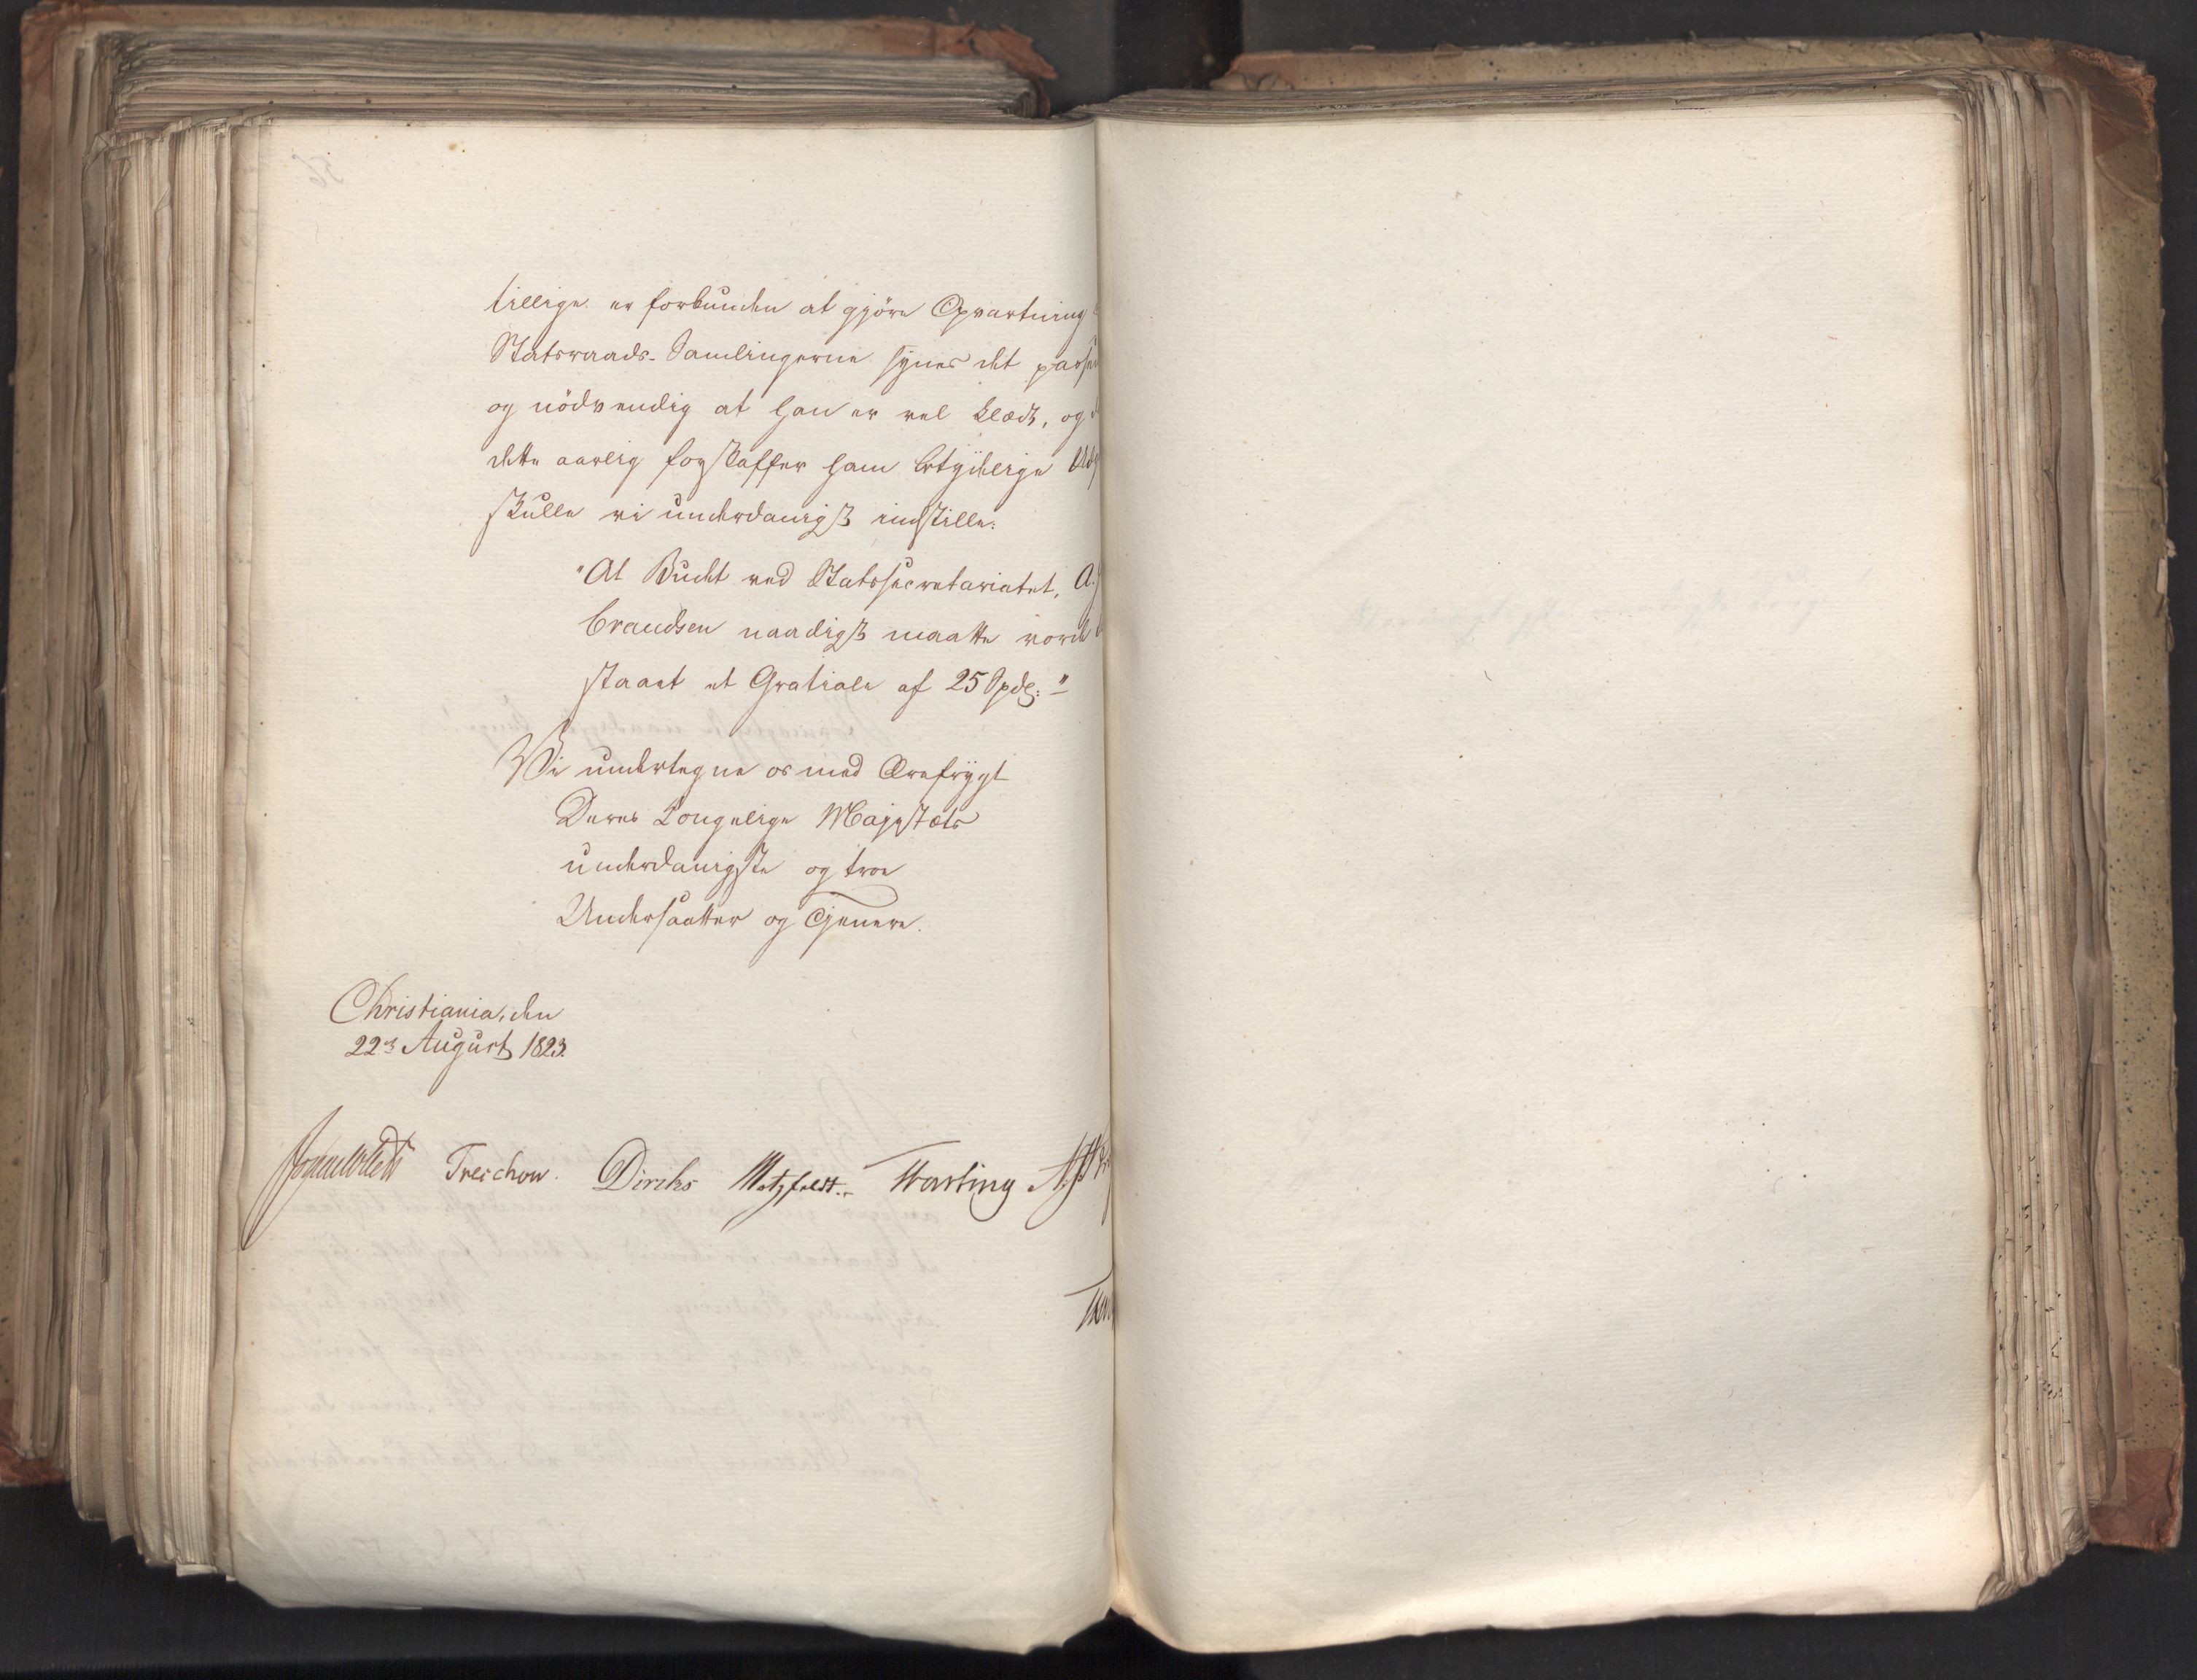 tillige er forbunden at gjöre Opvartning
Statsraads-Samlingerne synes det
og nödvendig at han er vel klædt, og
dette aarlig forskaffer ham betydelige
skulle vi underdanigst indstille:
"At Budet ved Statssecretariatet, A.
Brandsen naadigst maatte vorde
staaet et Gratiale af 25 Spdlr:"
Vi undertegne os med Ærefrygt
Deres Kongelige Majestæts
underdanigste og troe
Undersaatter og Tjenere.
Christiania, den
22de August 1823.
Treschow. Diriks Motzfeldt. Fasting